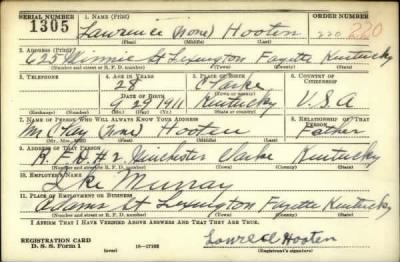 SERIAL NUMBER 1. NAME (Print) ORDER NUMBER
1305 Lawrence (None) Hooten 220 220
(First) (Middle) (Last)
2. ADDRESS (Print)
625 St Lexington Fayette Kentucky
(Number and street or R. F. D. number) (Town) (County) (State)
3. TELEPHONE 4. AGE IN YEARS 5. PLACE OF BIRTH 6. COUNTRY OF CITIZENSHIP
28 Clarke
DATE OF BIRTH (Town or county)
9 29 1911 Kentucky U.S.A
(Exchange) (Number) (Mo.) (Day) (Yr.) (State or country)
7. NAME OF PERSON WHO WILL ALWAYS KNOW YOUR ADDRESS 8. RELATIONSHIP OF THAT PERSON
Mr Clay (None) Hooten Father
(Mr., Mrs., Miss) (First) (Middle) (Last)
9. ADDRESS OF THAT PERSON
R.F.D. #2 Winchester Clarke Kentucky
(Number and street or R. F. D. number) (Town) (County) (State)
10. EMPLOYER'S NAME
Ike Murray
11. PLACE OF EMPLOYMENT OR BUSINESS
Adams St Lexington Fayette Kentucky
(Number and street or R. F. D. number) (Town) (County) (State)
I AFFIRM THAT I HAVE VERIFIED ABOVE ANSWERS AND THAT THEY ARE TRUE.
REGISTRATION CARD
D. S. S. Form 1 (over) 16—17105 Hooten
(Registrant's signature)